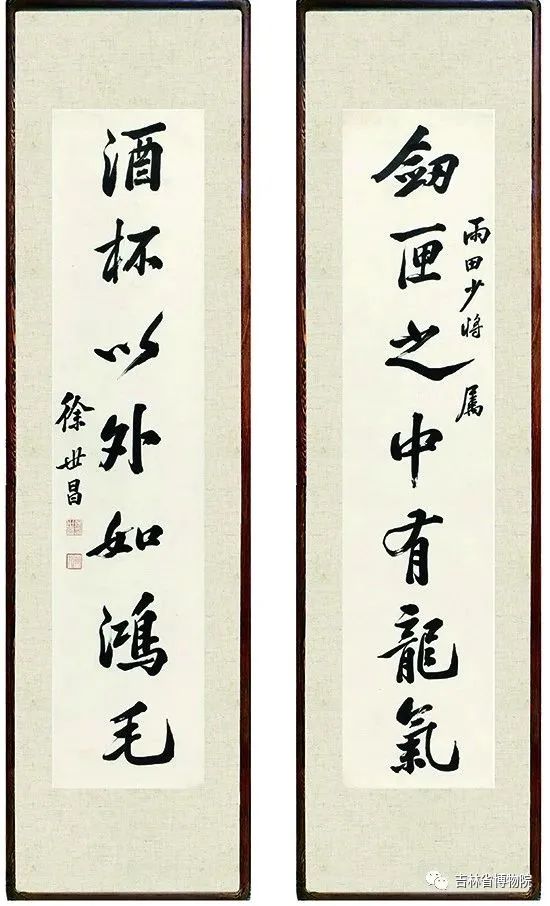 雨田少将 属
劒匣之中有龍氣
酒杯以外如鴻毛
徐世昌
吉林省博物院